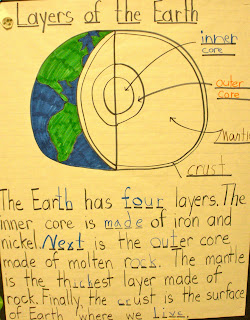 Layers of the Earth
inner
core
outer
core
Mantle
crust
The Earth has four layers. The
inner core is made of iron and
nickel. Next is the outer core
made of molten rock. The mantle
is the thickest layer made of
rock. Finally the crust is the surface
of Earth where we live.